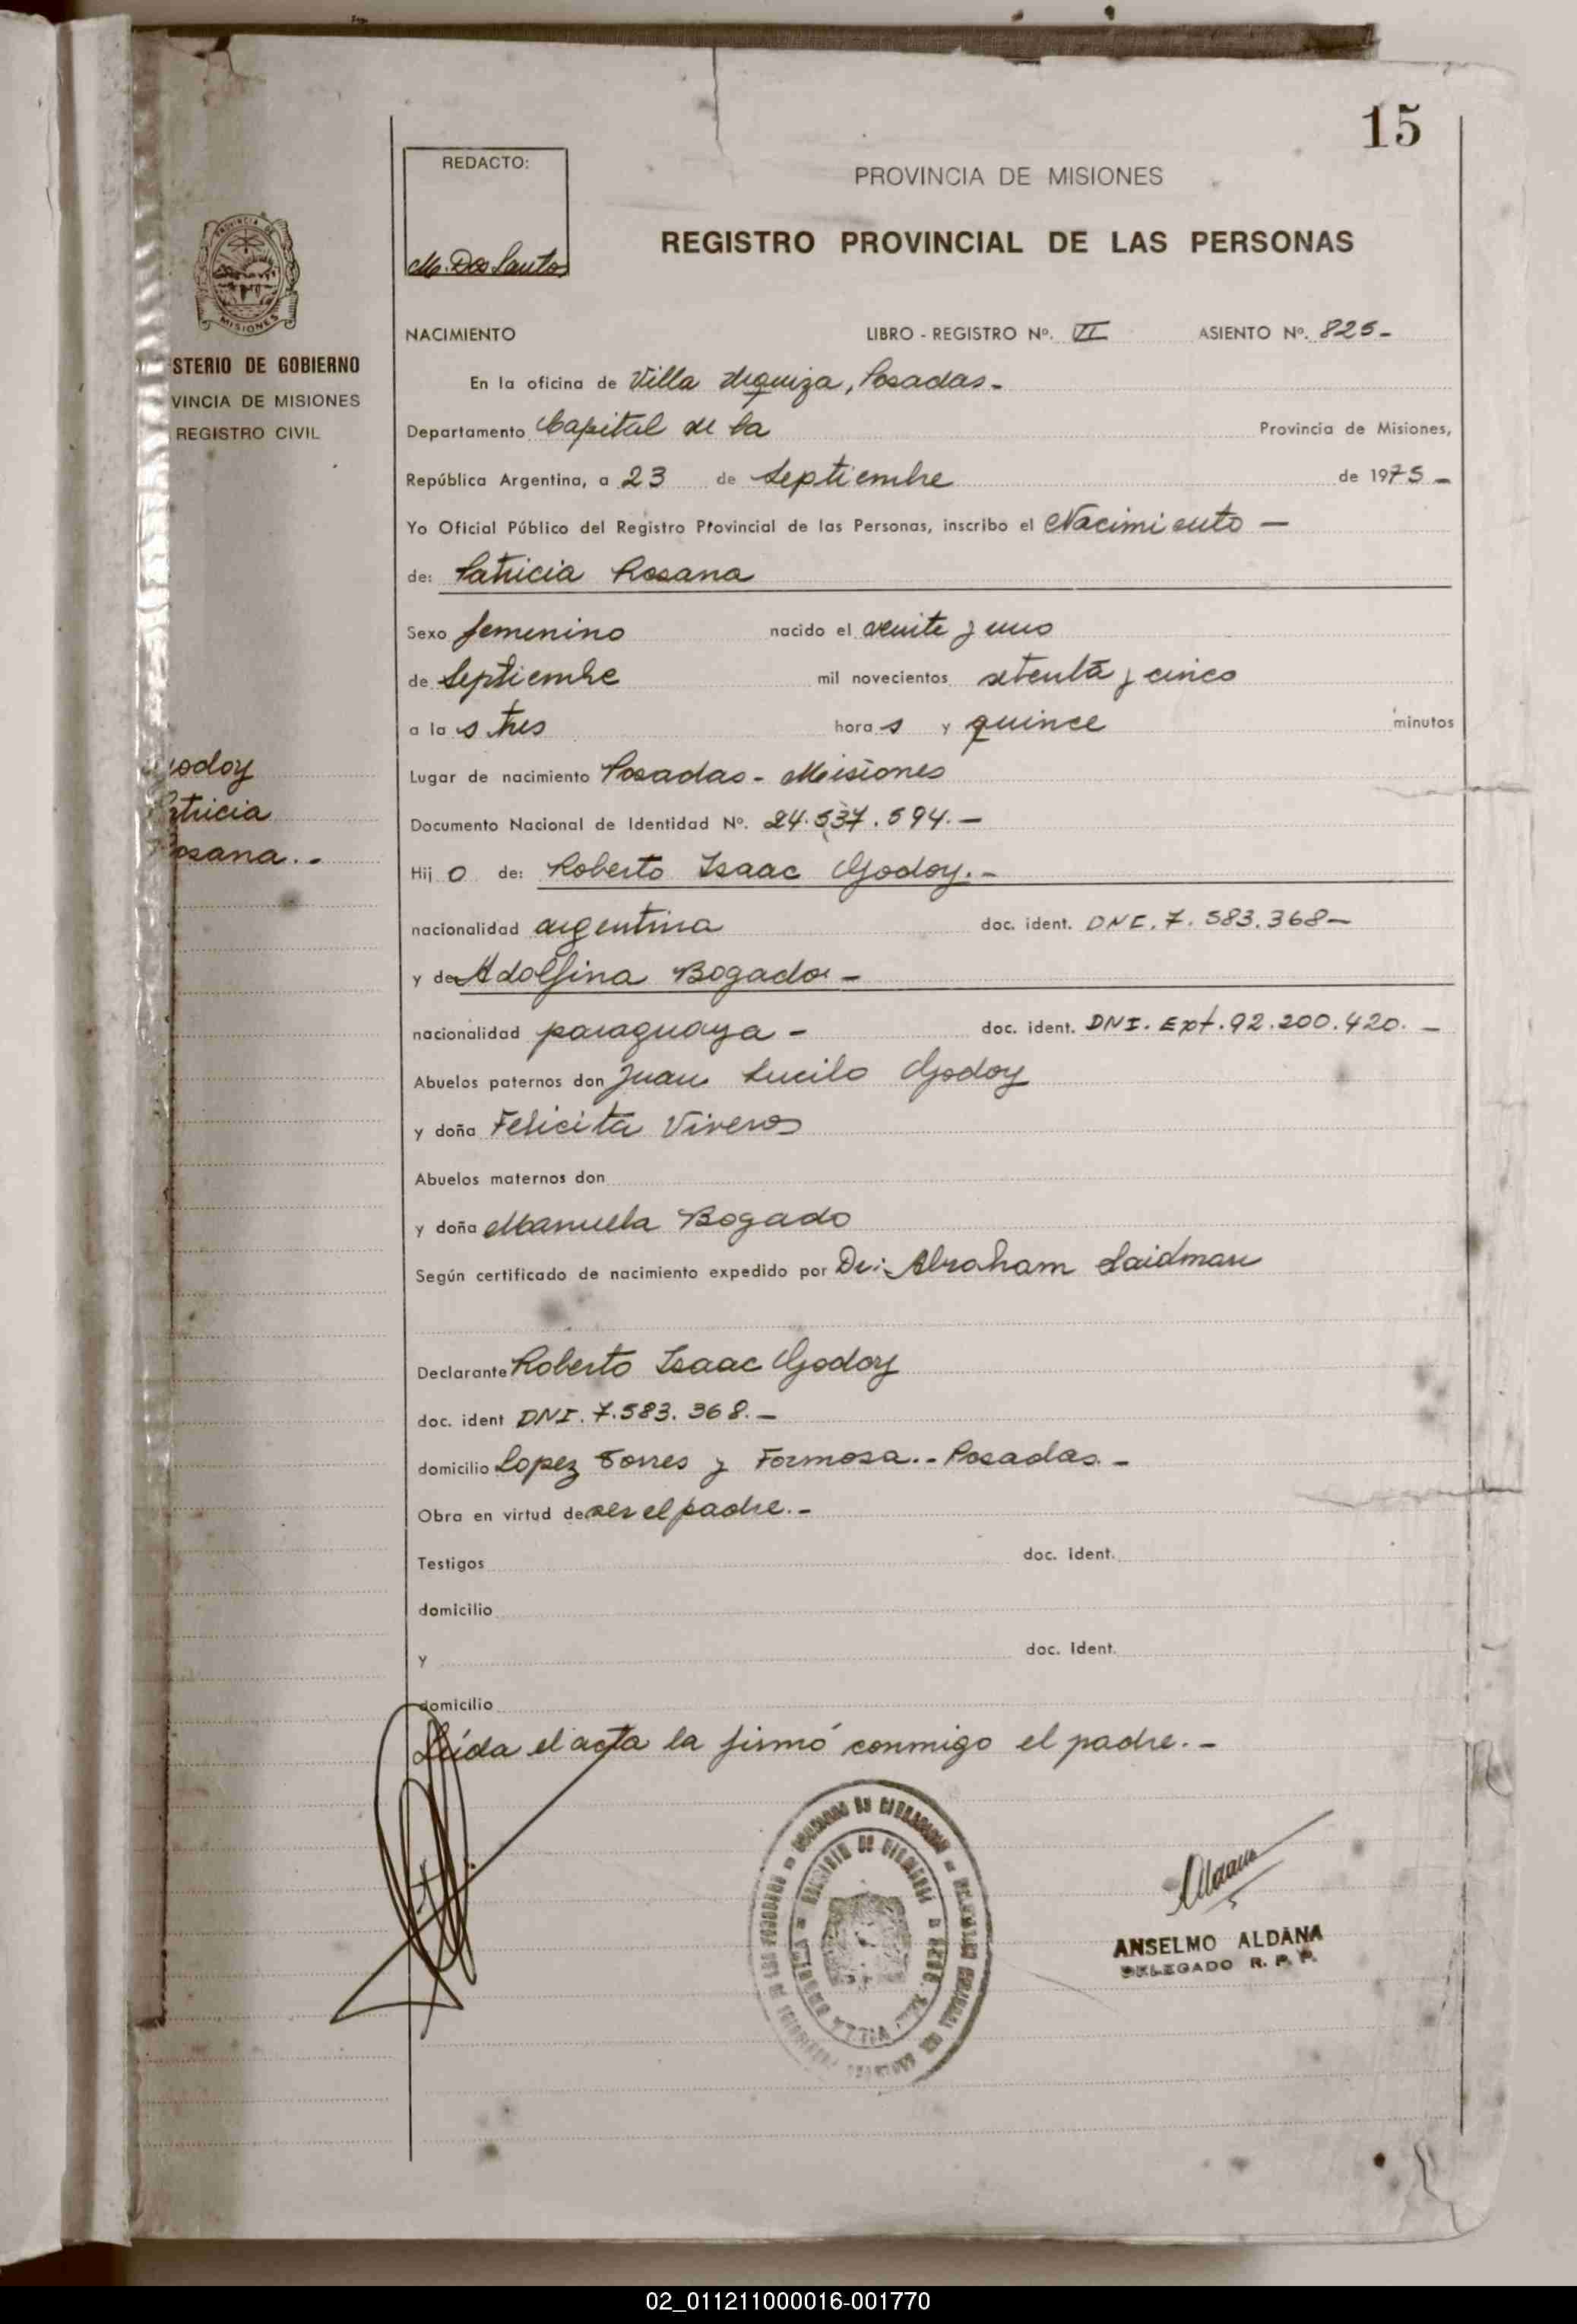 15
REDACTO:
M. Dos Santos
PROVINCIA DE MISIONES
REGISTRO PROVINCIAL DE LAS PERSONAS
PROVINCIA DE
MISIONES
STERIO DE GOBIERNO
VINCIA DE MISIONES
REGISTRO CIVIL
NACIMIENTO LIBRO - REGISTRO Nº. VI ASIENTO Nº. 825-
En la oficina de Villa Urquiza, Posadas.-
Departamento Capital de la Provincia de Misiones,
República Argentina, a 23 de Septiembre de 1975-
Yo Oficial Público del Registro Provincial de las Personas, inscribo el Nacimiento -
de: Patricia Rosana
Sexo femenino nacido el veinte y uno
de Septiembre mil novecientos setenta y cinco
a las tres horas y quince minutos
Godoy
Patricia
Rosana.-
Lugar de nacimiento Posadas - Misiones
Documento Nacional de Identidad Nº. 24.537.594.-
Hij o de: Roberto Isaac Godoy.-
nacionalidad argentina doc. ident. DNI. 7.583.368-
y de Adolfina Bogado -
nacionalidad paraguaya - doc. ident. DNI. Ext. 92.200.420.-
Abuelos paternos don Juan Lucilo Godoy
y doña Felicita Viveros
Abuelos maternos don
y doña Manuela Bogado
Según certificado de nacimiento expedido por Dr: Abraham Saidman
Declarante Roberto Isaac Godoy
doc. ident DNI. 7.583.368.-
domicilio Lopez Torres y Formosa.- Posadas.-
Obra en virtud de ser el padre.-
Testigos doc. ident.
domicilio
y doc. ident.
domicilio
Leída el acta la firmó conmigo el padre.-
Aldana
ANSELMO ALDANA
DELEGADO R. P. P.
VILLA URQUIZA
02_011211000016-001770